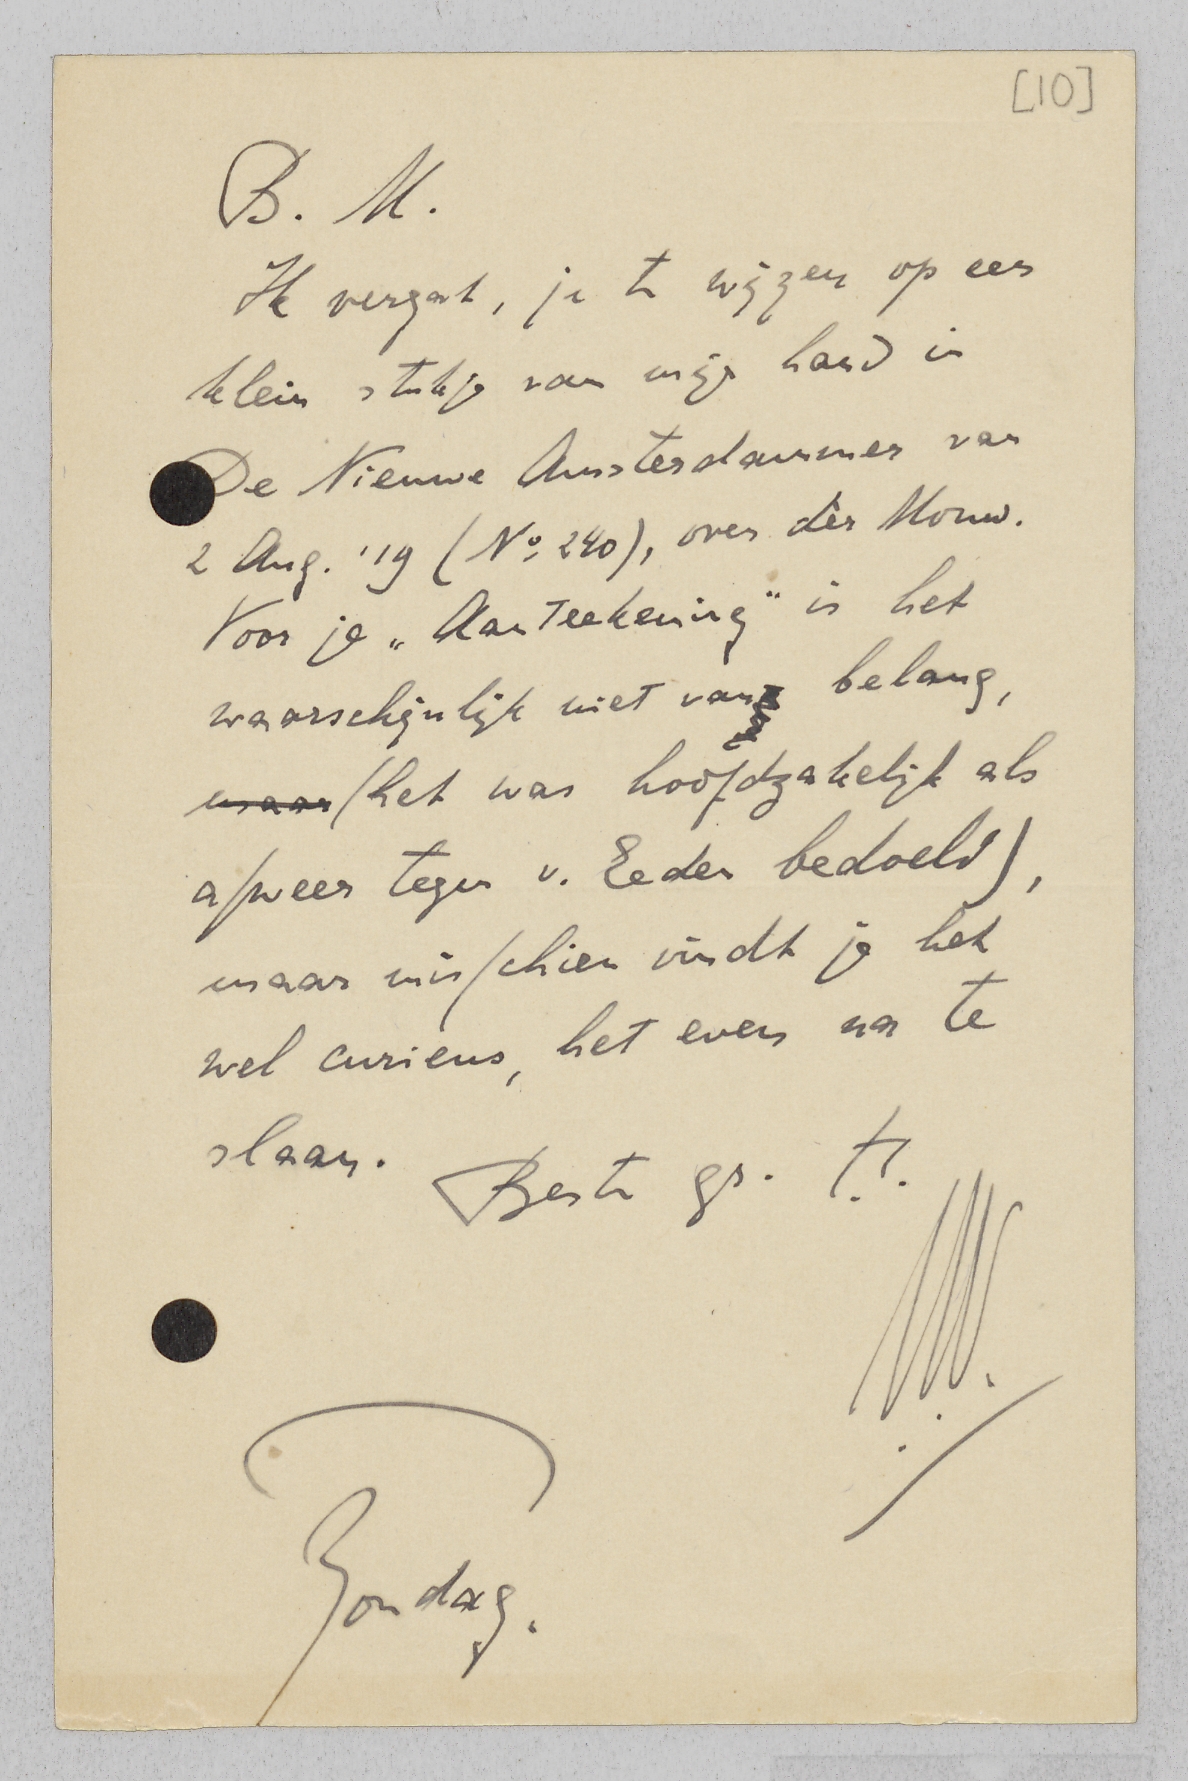 [10]
B. M.
Ik vergat, je te wijzen op een
klein stukje van mijn hand in
De Nieuwe Amsterdammer van
2 Aug. '19 (No. 240), over dèr Mouw.
Voor je „Aanteekening" is het
waarschijnlijk niet van belang,
maar (het was hoofdzakelijk als
afweer tegen v. Eeden bedoeld),
maar misschien vindt je het
wel curieus, het even na te
slaan.
Beste gr. t.t.
Zondag.